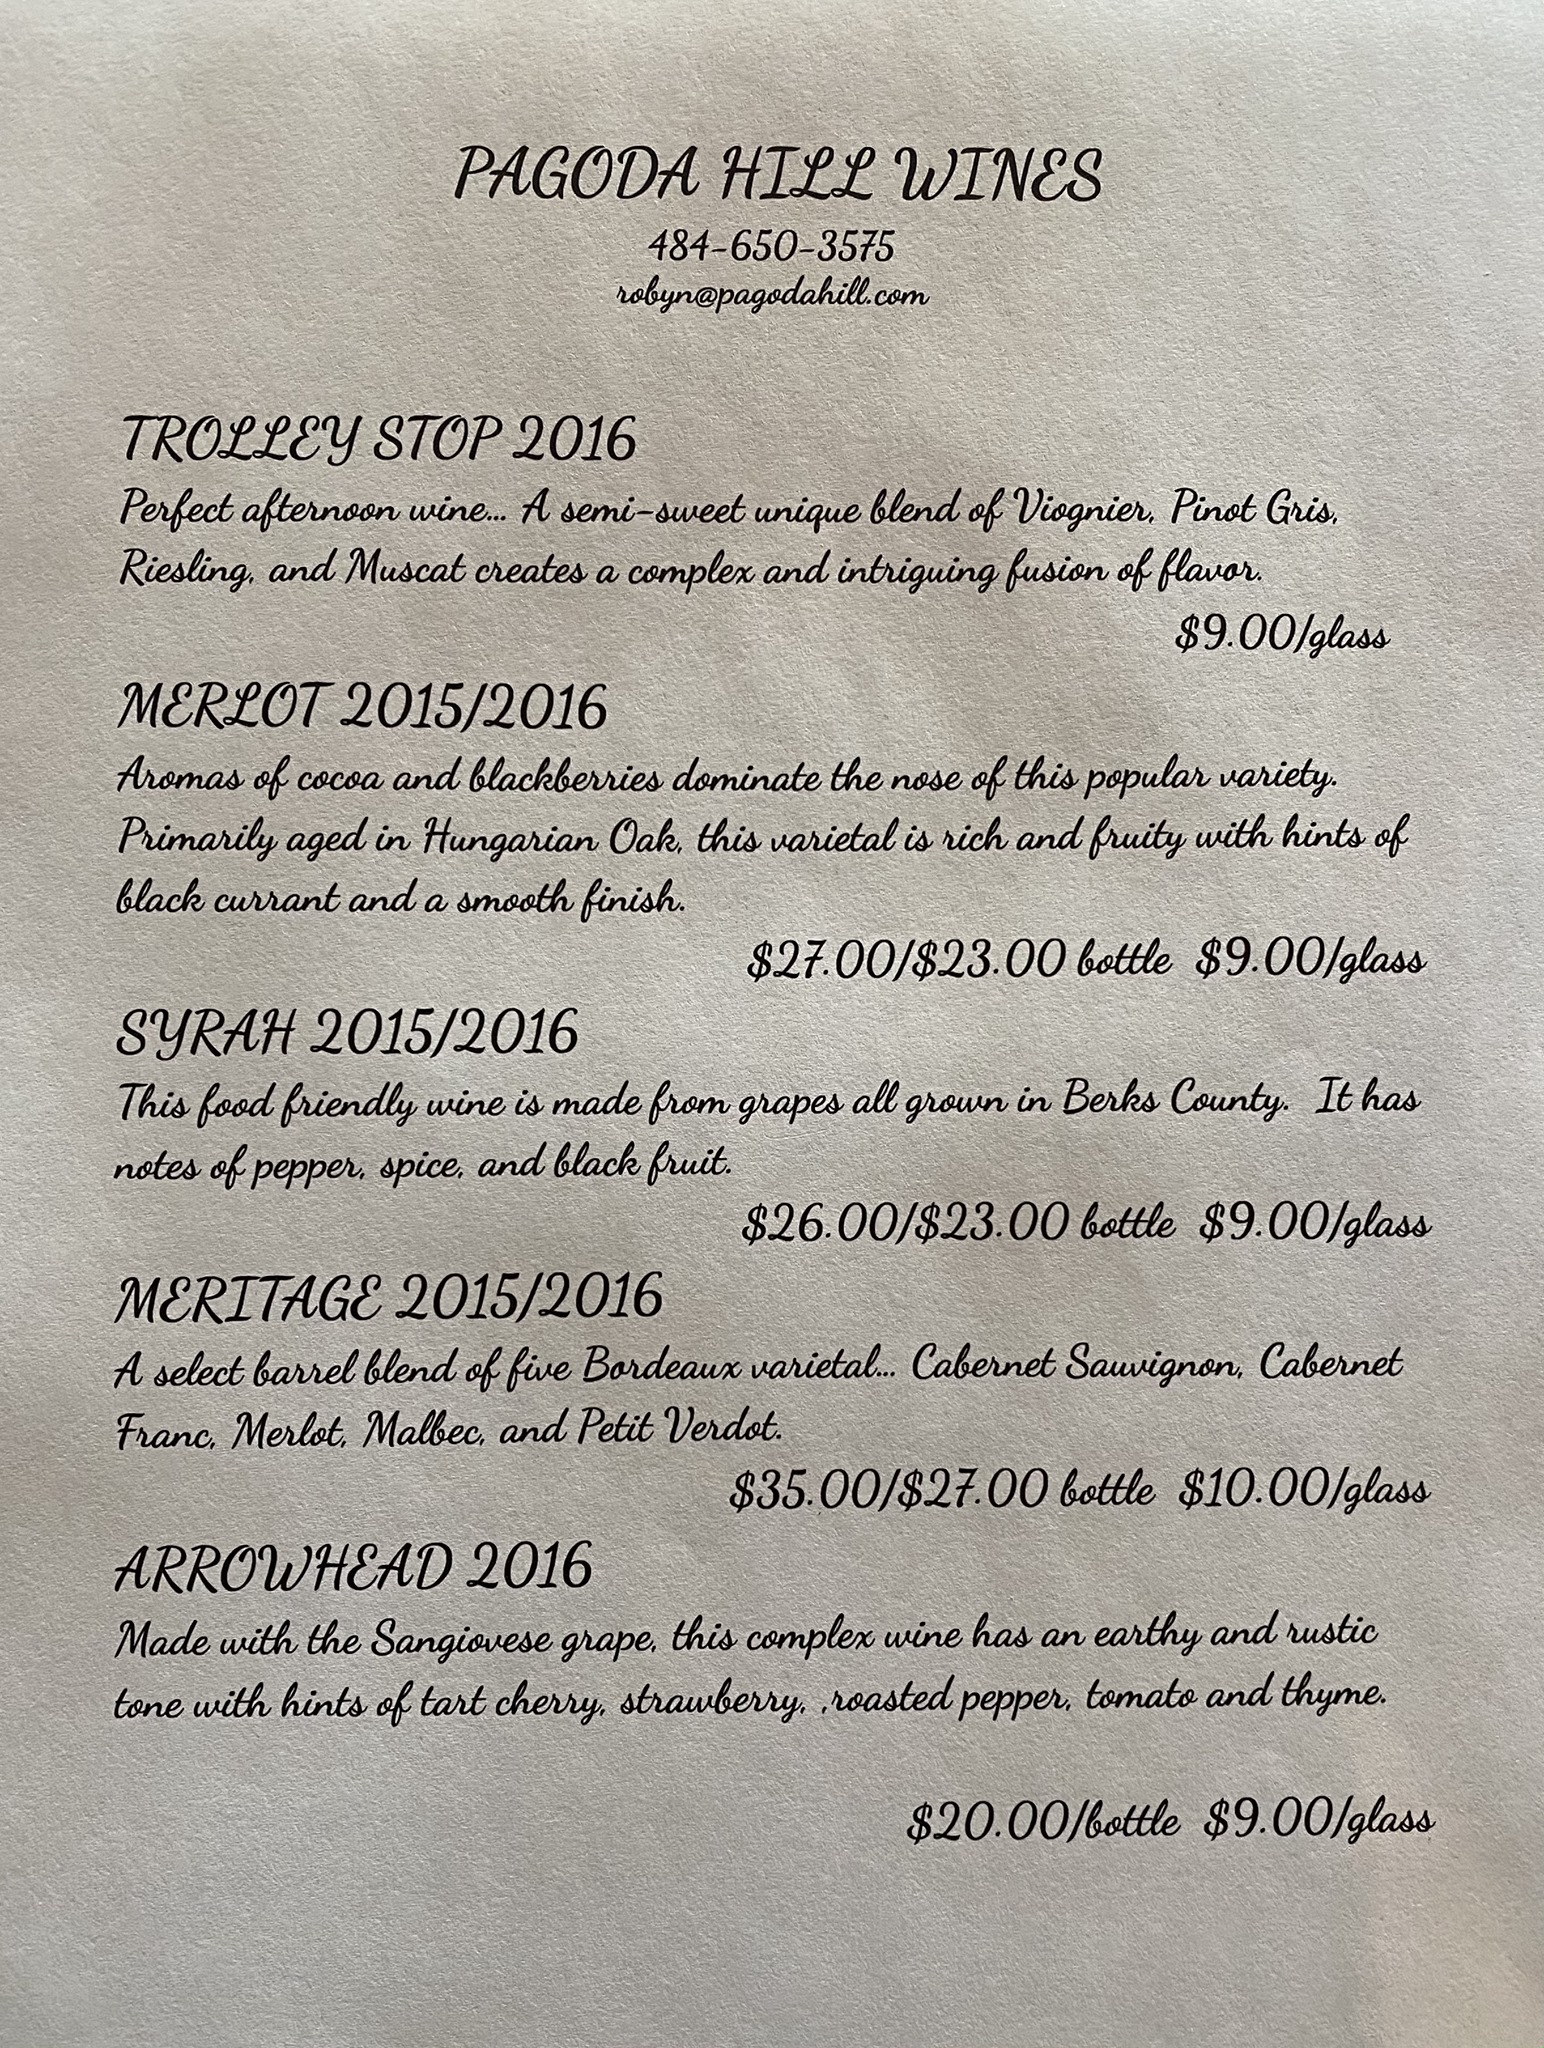 PAGODA HILL WINES
484-650-3575
robyn@pagodahill.com
TROLLEY STOP 2016
Perfect afternoon wine... A semi-sweet unique blend of Viognier, Pinot Gris,
Riesling, and Muscat creates a complex and intriguing fusion of flavor.
$9.00/glass
MERLOT 2015/2016
Aromas of cocoa and blackberries dominate the nose of this popular variety.
Primarily aged in Hungarian Oak, this varietal is rich and fruity with hints of
black currant and a smooth finish.
$27.00/$23.00 bottle $9.00/glass
SYRAH 2015/2016
This food friendly wine is made from grapes all grown in Berks County. It has
notes of pepper, spice, and black fruit.
$26.00/$23.00 bottle $9.00/glass
MERITAGE 2015/2016
A select barrel blend of five Bordeaux varietal... Cabernet Sauvignon, Cabernet
Franc, Merlot, Malbec, and Petit Verdot.
$35.00/$27.00 bottle $10.00/glass
ARROWHEAD 2016
Made with the Sangiovese grape, this complex wine has an earthy and rustic
tone with hints of tart cherry, strawberry, ,roasted pepper, tomato and thyme.
$20.00/bottle $9.00/glass